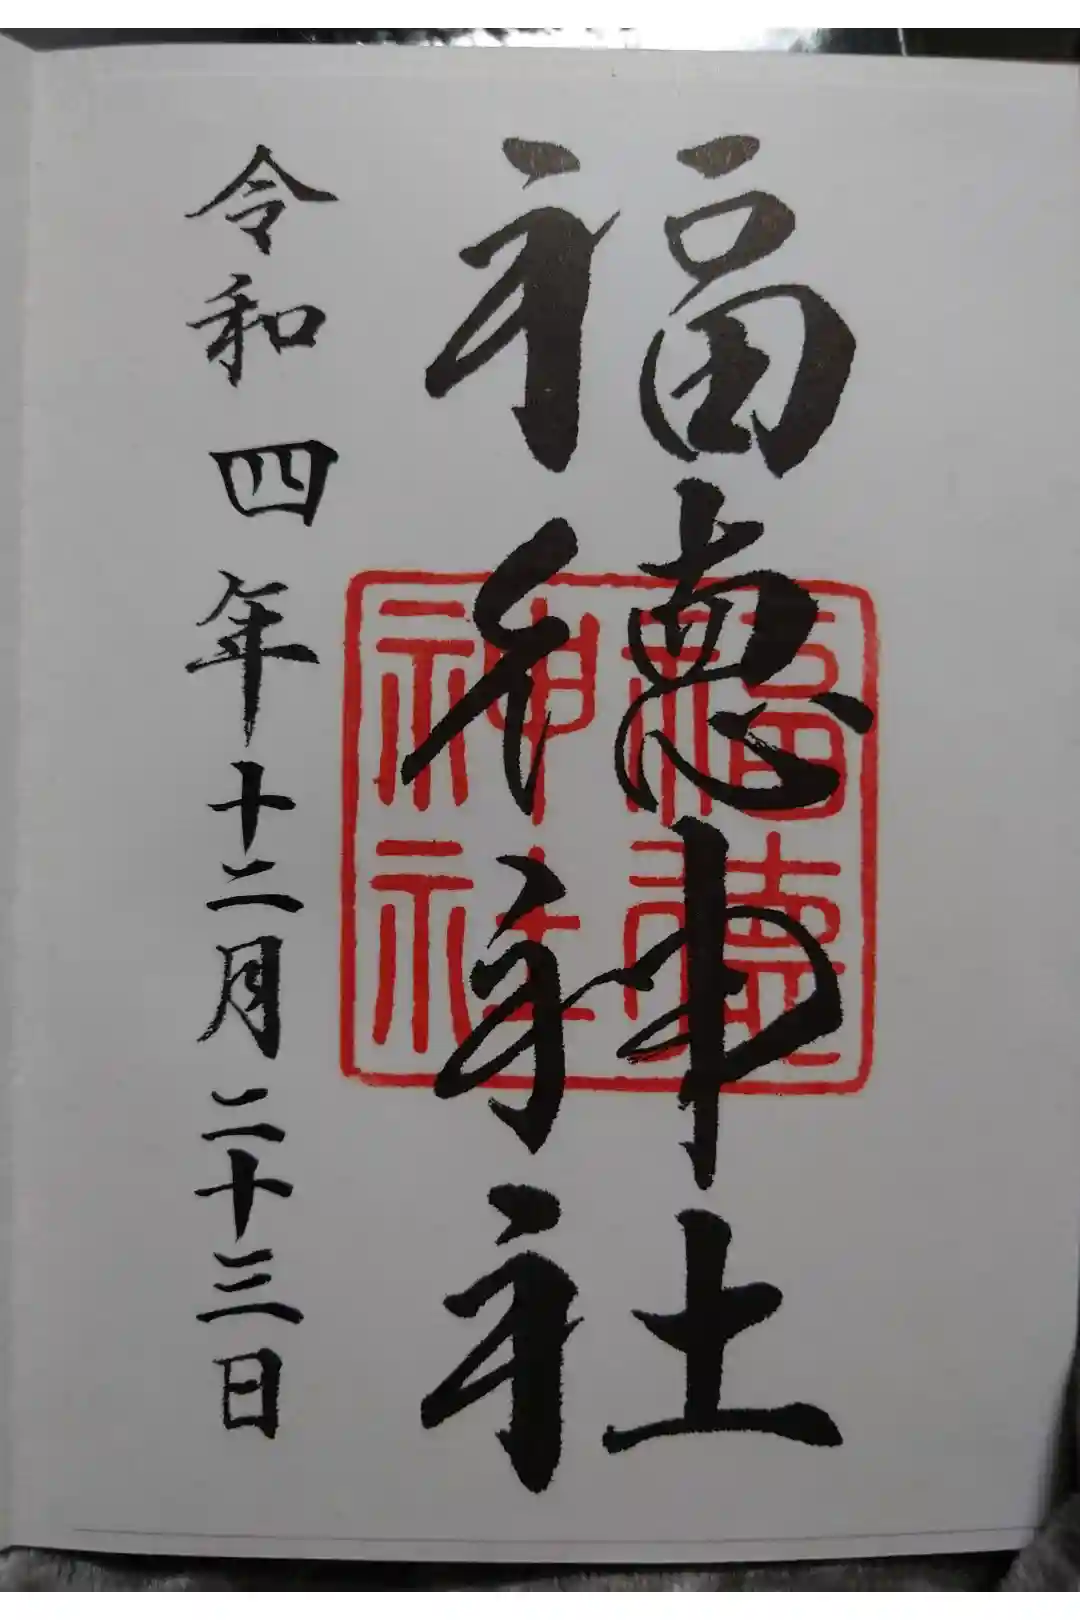 福徳神社
福徳
神社
令和四年十二月二十三日